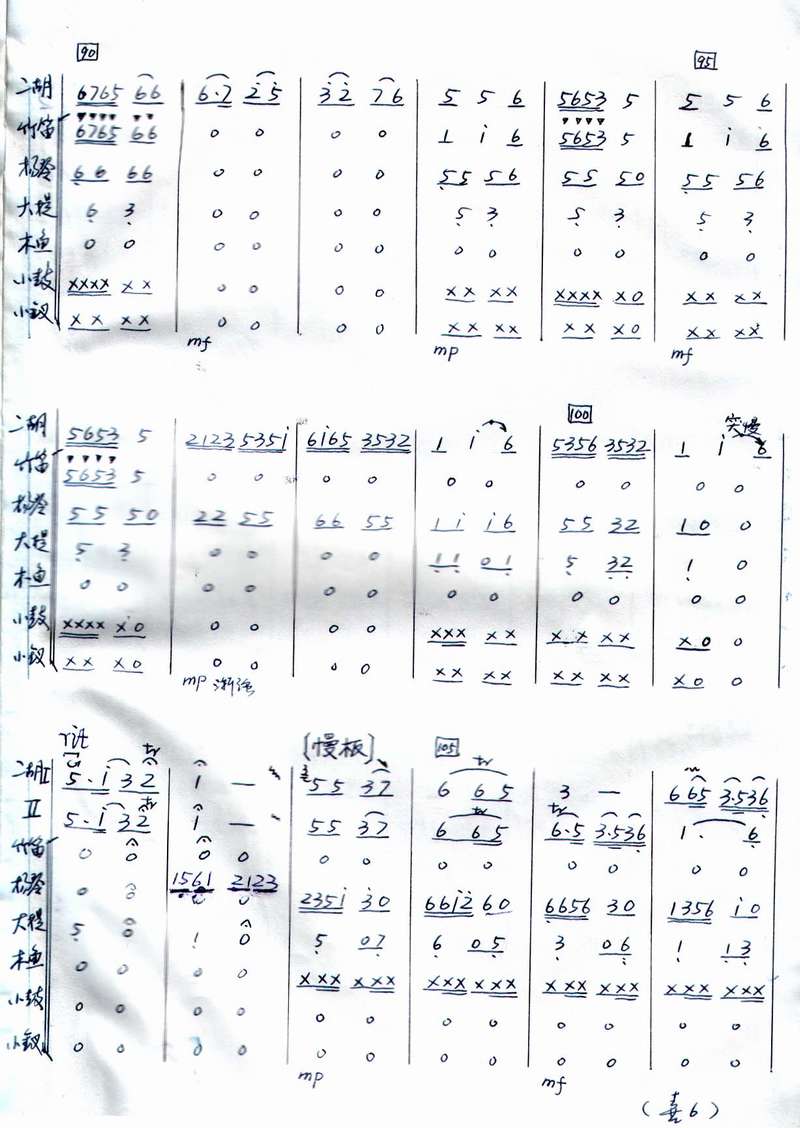 90 95
二胡 6765 66 | 6·7 25 | 32 76 | 5 5 6 | 5653 5 | 5 5 6
竹笛 6765 66 | 0 0 | 0 0 | 1 i 6 | 5653 5 | 1 i 6
扬琴 66 66 | 0 0 | 0 0 | 55 56 | 55 50 | 55 56
大提 6 3 | 0 0 | 0 0 | 5 3 | 5 3 | 5 3
木鱼 0 0 | 0 0 | 0 0 | 0 0 | 0 0 | 0 0
小鼓 xxxx xx | 0 0 | 0 0 | xx xx | xxxx x0 | xx xx
小钗 xx xx | 0 0 | 0 0 | xx xx | xx x0 | xx xx
mf mp mf
100 突慢
二胡 5653 5 | 2123 535i | 6i65 3532 | 1 i 6 | 5356 3532 | 1 i 6
竹笛 5653 5 | 0 0 | 0 0 | 0 0 | 0 0 | 0 0
扬琴 55 50 | 22 55 | 66 55 | 1i i6 | 55 32 | 10 0
大提 5 3 | 0 0 | 0 0 | 11 01 | 5 32 | 1 0
木鱼 0 0 | 0 0 | 0 0 | 0 0 | 0 0 | 0 0
小鼓 xxxx x0 | 0 0 | 0 0 | xxx xx | xx xx | x0 0
小钗 xx x0 | 0 0 | 0 0 | xx xx | xx xx | x0 0
mp 渐强
rit [慢板] 105
二胡I 5·i 32 | 1 — | 55 37 | 6 65 | 3 — | 665 3·536
II 5·i 32 | 1 — | 55 37 | 6 65 | 6·5 3·536 | 1· 6
竹笛 0 0 | 0 0 | 0 0 | 0 0 | 0 0 | 0 0
扬琴 0 0 | 1561 2123 | 235i 30 | 66i2 60 | 6656 30 | 1356 i0
大提 5 0 | 1 0 | 5 07 | 6 05 | 3 06 | 1 13
木鱼 0 0 | 0 0 | xxx xxx | xxx xxx | xxx xxx | xxx xxx
小鼓 0 0 | 0 0 | 0 0 | 0 0 | 0 0 | 0 0
小钗 0 0 | 0 0 | 0 0 | 0 0 | 0 0 | 0 0
mp mf
(喜6)